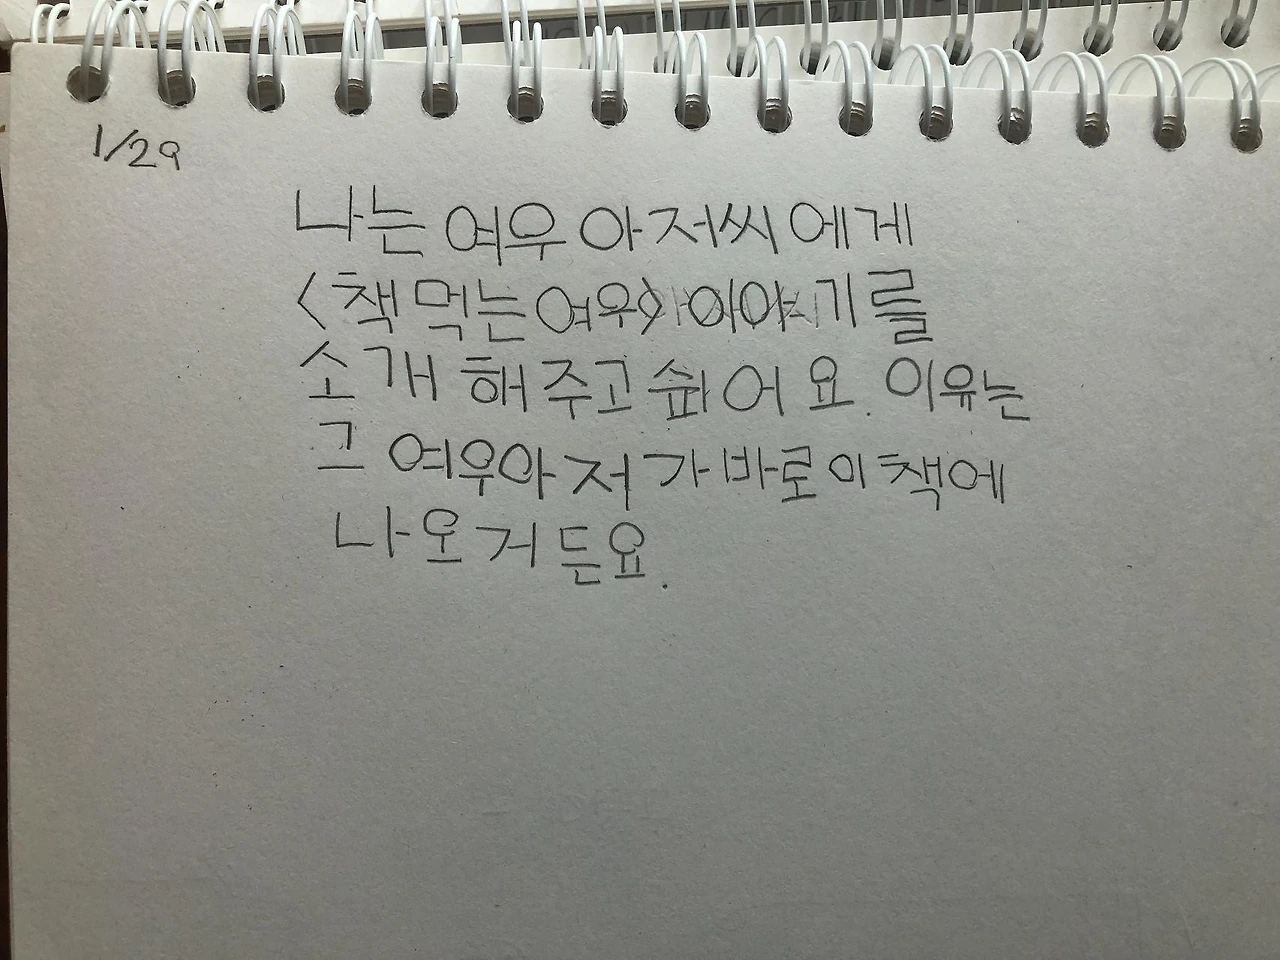 1/29
나는 여우 아저씨에게
<책 먹는 여우> 이야기를
소개해주고 슆어요. 이유는
그 여우아저가 바로 이 책에
나오거든요.